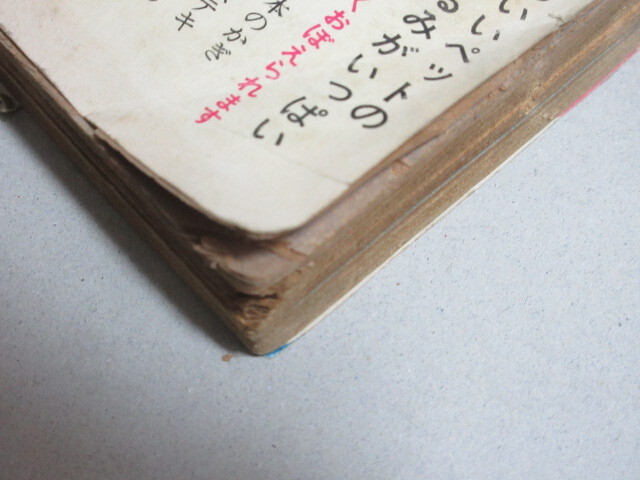 いいペットの
るみがいつぱい
くおぼえられます
本のかぎ
テキ